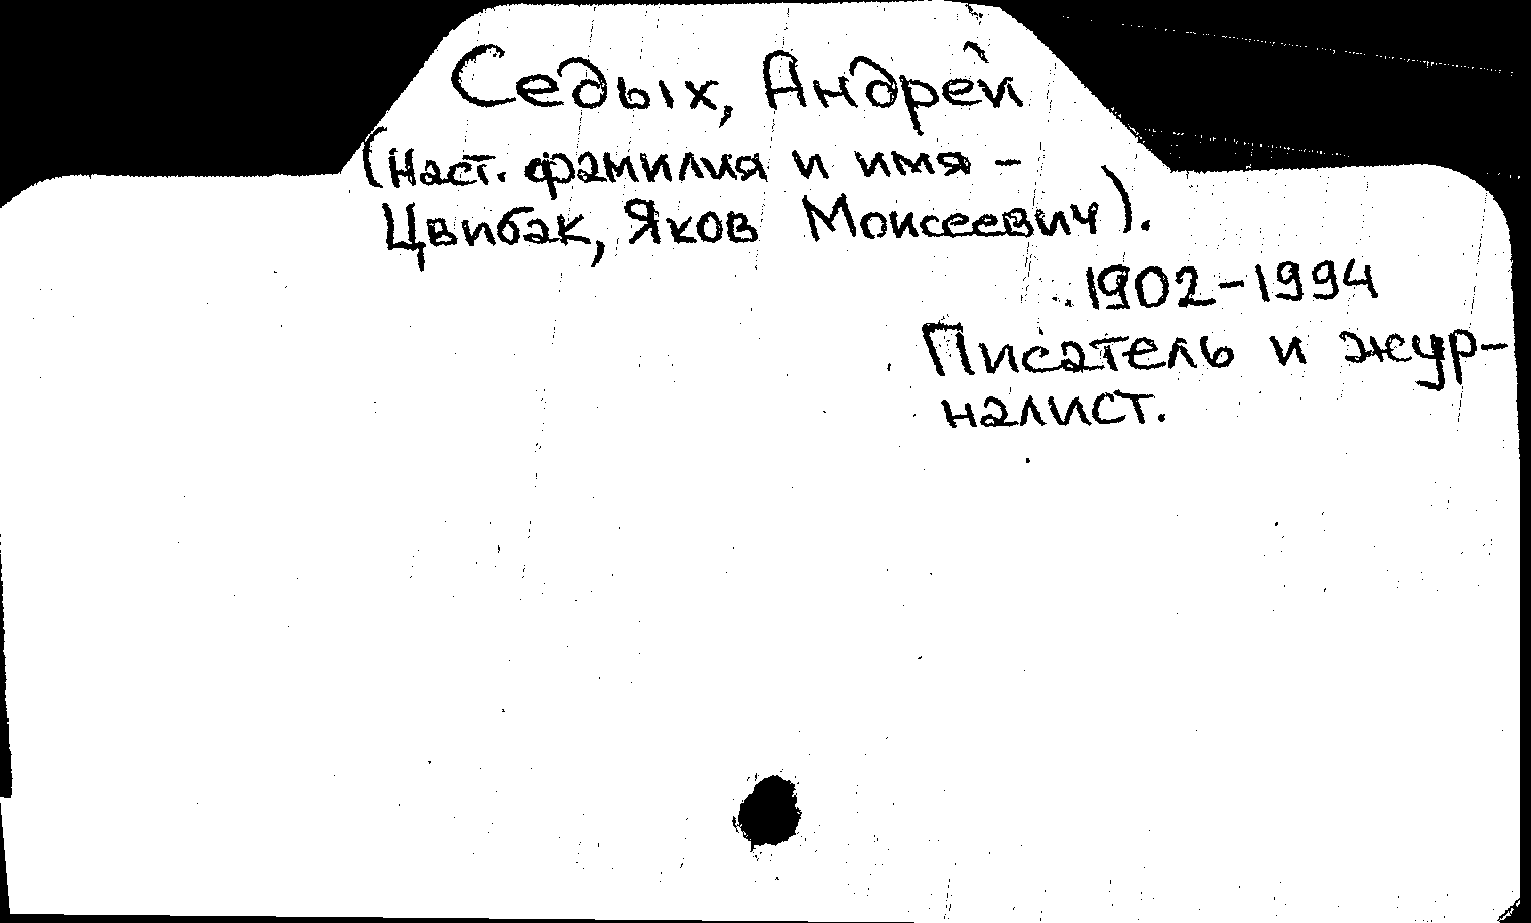 Седых, Андрей
(Наст. фамилия и имя –
Цвибак, Яков Моисеевич).
1902–1994
Писатель и жур-
налист.